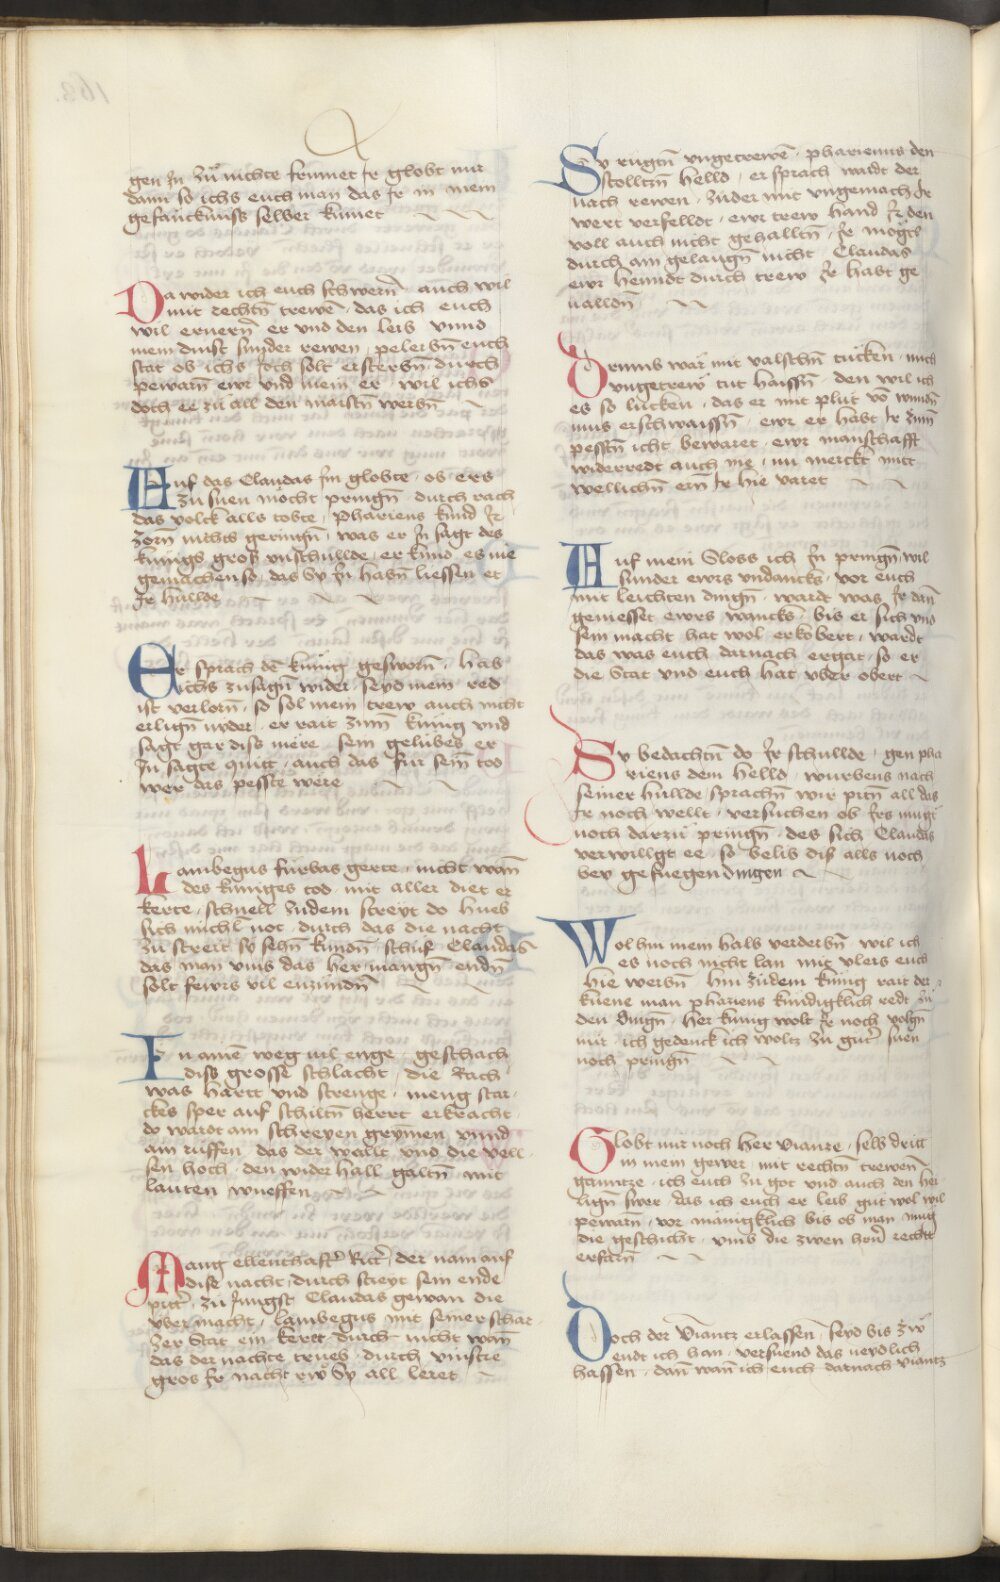 gen In zů nichte frumet Ir globt mir
dann so ichs euch man das Ir in mein
gefanckhnuss selber kumet
Da wider ich euch schwern̄ auch wil
mit rechtn̄ trewē · das ich euch
wil ernern̄ er vnd den leib vnnd
mein dinst sunder rewen · peleibn̄ euch
stat ob ichs Joch solt ersterbn̄ dinech
pewarn̄ ewr vnd mein er · wil ichs
doch ee zu all den maistn̄ werbn̄
Auf das Claudas Im globte · ob ers
zu suen mocht pringn̄ · durch rach
das volck alls tobte · Phariens kund Ir
zorn̄ nichts geringn̄ · was er In sagt des
kunigs gross vnschullde · er kund es nie
gemachen so · das Sy In habn̄ liessen er
Ir hullde
Er sprach dē kunig gesworn̄ · hab
ichs zusagn̄ wider · seyd mein red
ist verlorn̄ · so sol mein trew auch nicht
erlign̄ nyder · er rait zum kunig vnd
sagt gar diss mere · sein gelubes er
In sagte quitt · auch das fur sein̄ tod
wer das pesste were
Lambegus furbas gerte · nicht wan̄
des kuniges tod · mit aller diet er
kerte · schnell zudem streyt do hueb
sich michl not · durch das die nacht
zu streit sy sehn̄ kundn̄ · schuf Claudas
das man vmb das her · mangn̄ endn̄
solt fewrs vil enzundn̄
In amē weg vil enge · geschach
diss grosse schlacht · die Rach
was hartt vnd strenge · meng star
ckes sper auf schiltn̄ herrt erkracht
do wardt am schreyen grymen vnnd
am ruffen · das der wallt vnd die vell
sen hoch · den wider hall galtn̄ mit
lauten wueffen
Mang ellenthaftr̄ Rittr̄ · der nam auf
dise nacht · durch streyt sein ende
pittr̄ · zu Jungst Claudas gewan die
vber macht · lambegus mit seiner schar
zer Stat ein kertt durch nicht wan̄
das der nachte trueb · durch vinstre
gros Ir nacht rw Sy all leret
Sy rugtn̄ vngetrewē · phariennis den
Stolltzn̄ helld · er sprach waldt der
nach rewen · zuder mit vngemach Ir
wert verfelldt · ewr trew hand Ir den
voll auch nicht gehalltn̄ · Ir mogt
durch am gelangn̄ nicht · Claudas
ewr henndt durch trew Ir habt ge
ualldn̄
Drumb war mit valschn̄ tucken · mich
vngetrew tut haissn̄ · den wil ich
es so lucken · das er mit plut vō wundn̄
mus erschwaissn̄ · ewr er habt Ir zum
pesstn̄ icht bewaret · ewr manschafft
widerredt auch me · nu merckt mitt
wellichn̄ ern̄ Ir hie varet
Auf mein Sloss ich In pringn̄ wil
sunder ewrs vndancks · vor euch
mit leichten dingn̄ · wardt was Ir dan̄
geniesset ewrs wancks · bis er sich vnd
sein macht hat wol erkobert · wardt
das was euch darnach ergat · so er
die Stat vnd euch hat vber obert
Sy bedachtn̄ do Ir schullde · gen pha
riens dem helld · wurbens nach
seiner hullde sprachn̄ wir pitn̄ all das
Ir noch wellt · versuchen ob Irs mugt
noch darzu pringn̄ · des sich Claudas
verwilligt ee · so belib diss alls noch
bey gefuegen dingen
Wol hin mein hals verderbn̄ wil ich
es noch nicht lan mit vleis euch
hie werbn̄ · hin zudem kunig rait der
kuene man phariens kundigklich redt zu
den dingn̄ · her kunig wolt Ir noch volgn̄
mir · ich gedenck ich woltz zu gutr̄ suen
noch pringn̄
Globt mir noch her viantze · selb dritt
in mein gewer · mit rechtn̄ trewen
ganntze · ich euch zu got vnd auch den hei
lign̄ swer · das ich euch er leib gut wol wil
pewarn̄ · vor mānigklich bis ob man mug
die geschicht · vmb die zwen hern̄ rechtt
erfarn̄
Doch der Viantz erlassen · seyd bis zw
endt ich han · versuend das neydlich
hassen · dan̄ wan̄ ich euch darnach viantz